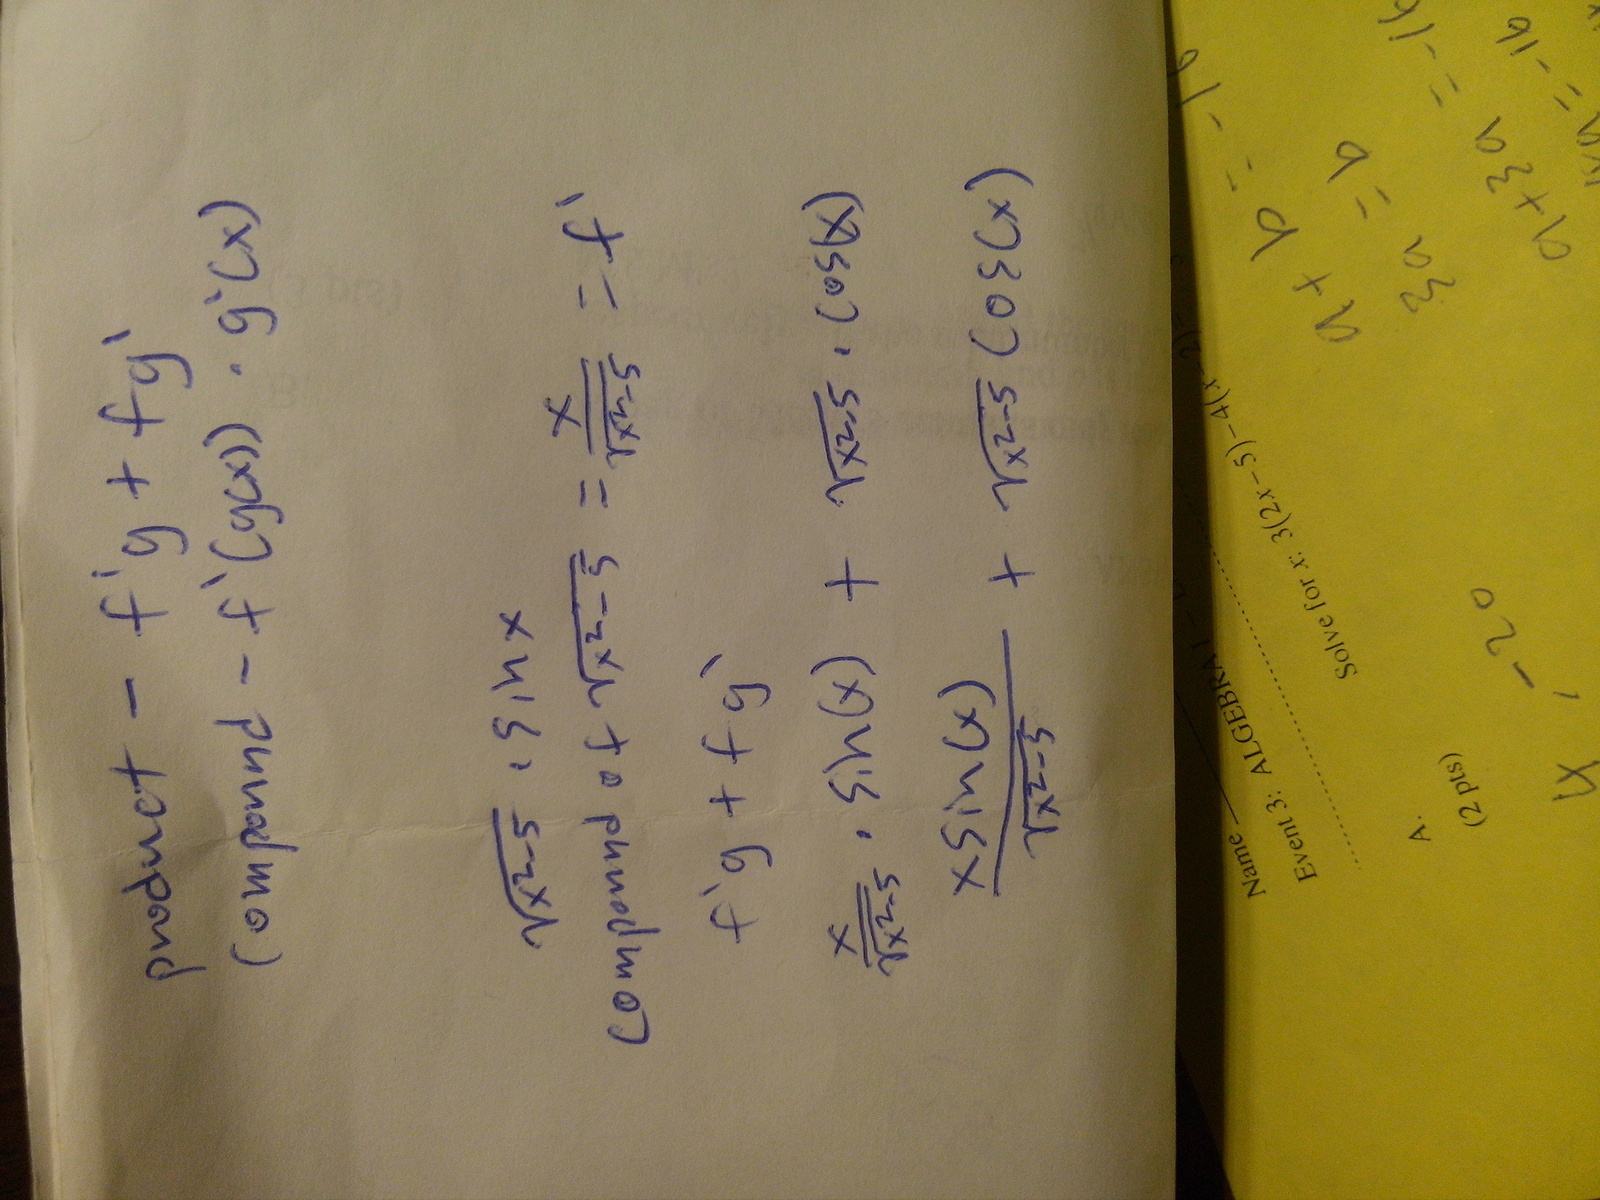 product - f'g + fg'
Compound - f'(g(x)) · g'(x)
√x²-5 · sin x
Compound of √x²-5 = x/√x²-5 = f'
f'g + fg'
x/√x²-5 · sin(x) + √x²-5 · cos(x)
xsin(x)/√x²-5 + √x²-5 cos(x)
Name
Event 3: ALGEBRA I
Solve for x: 3(2x-5)-4(x-2)
A.
(2 pts)
4, -20
a + b = -16
3a = b
a+3a = -16